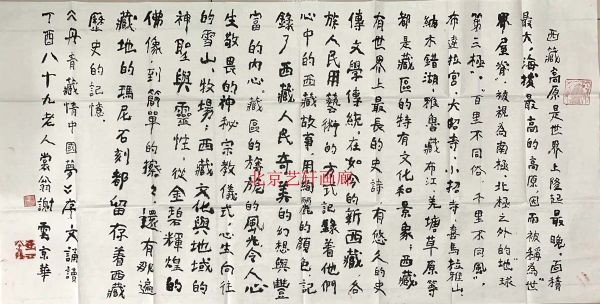 西藏高原是世界上隆起最晚、面積
最大、海拔最高的高原因而被稱為世
界屋脊，被視為南極北極之外的地球
第三極。百里不同俗，千里不同風。
布達拉宮，大昭寺，小招寺，喜馬拉雅山，
納木錯湖，雅魯藏布江，羌塘草原等
都是藏區的特有文化和景象；西藏
有世界上最長的史詩，有悠久的史
傳文學傳統，在如今的新西藏，各
族人民用藝術的方式記錄着他們
心中的西藏故事，用絢麗的顏色，記
錄了西藏人民奇美的幻想與豐
富的內心。藏區的旖旎的風光令人心
生敬畏的神秘宗教儀式，心生向往
的雪山、牧場；西藏文化與地域的
神聖與靈性，從金碧輝煌的
佛像，到簡單的擦擦，還有那遍
藏地的瑪尼石刻都留存着西藏
歷史的記憶
《丹青藏情中國夢》序文誦讀
丁酉八十九老人裳翁謝雲京華
北京艺轩画廊